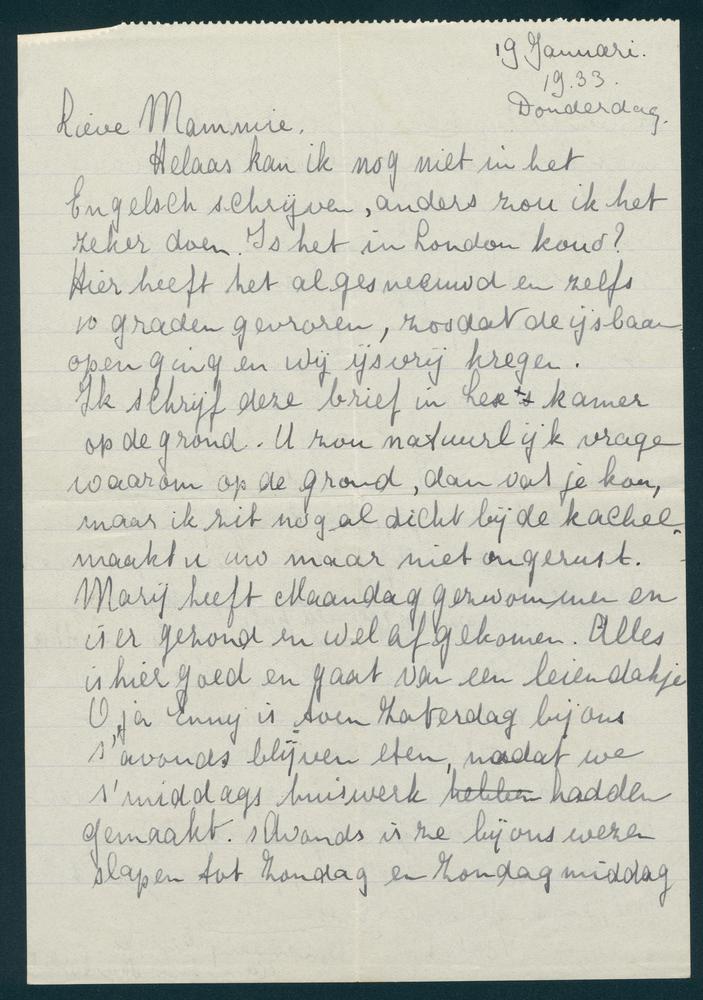 19 Januari.
19.33.
Donderdag.
Lieve Mammie.
Helaas kan ik nog niet in het
Engelsch schrijven, anders zou ik het
zeker doen. Is het in London koud?
Hier heeft het al gesneeuwd en zelfs
10 graden gevroren, zoodat de ijsbaan
open ging en wij ijsvrij kregen.
Ik schrijf deze brief in Lex's kamer
op de grond. U zou natuurlijk vrage
waarom op de grond, dan vat je kou,
maar ik zit nog al dicht bij de kachel.
maakt u uw maar niet ongerust.
Marij heeft Maandag gezwommen en
is er gezond en wel af gekomen. Alles
is hier goed en gaat van een leiendakje
O, ja Enny is toen Zaterdag bij ons
s'avonds blijven eten, nadat we
s'middags huiswerk hebben hadden
gemaakt. sAvonds is ze bij ons wezen
slapen tot Zondag en Zondagmiddag